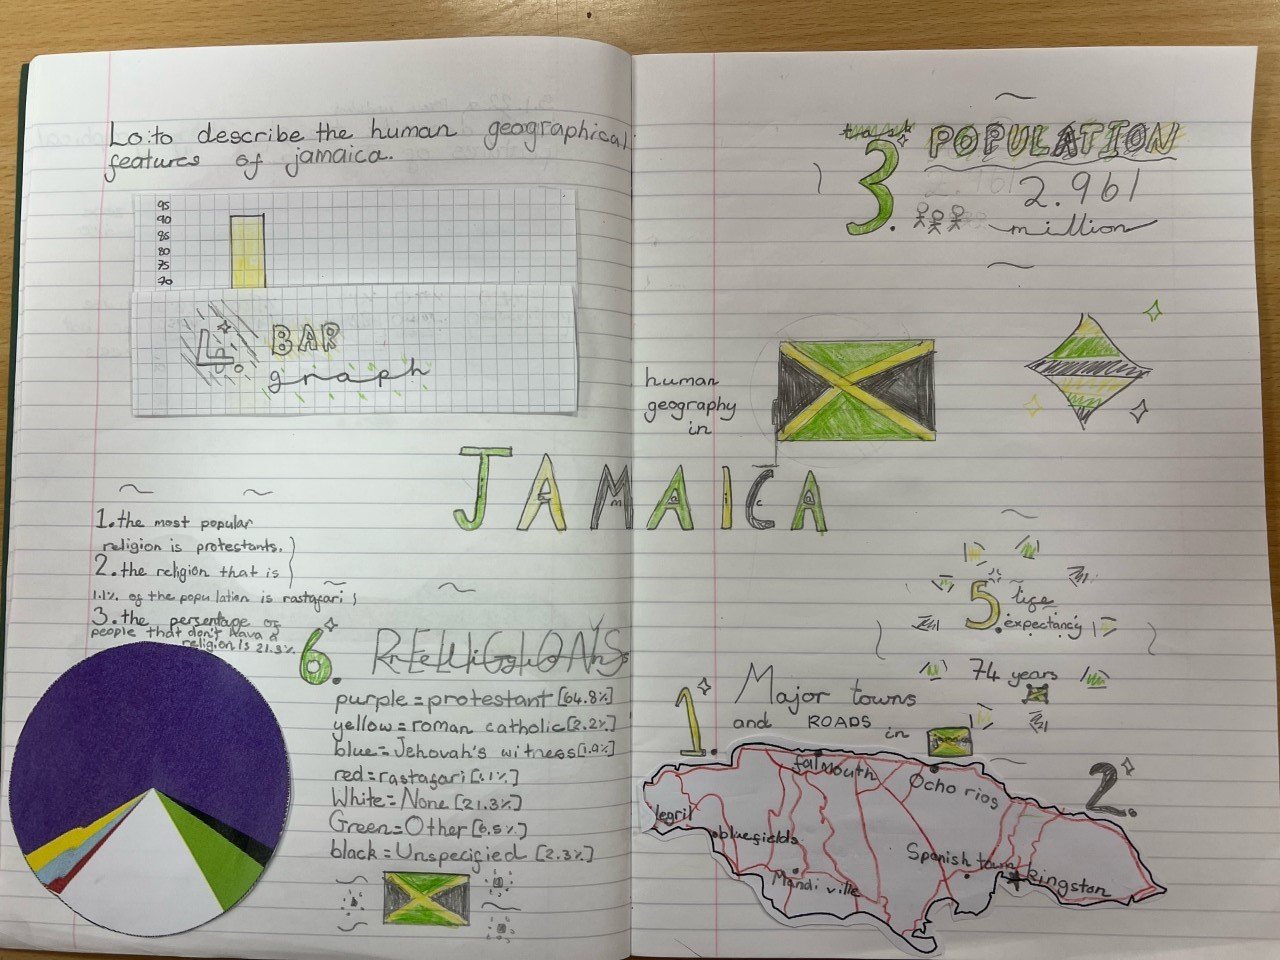 Lo: to describe the human geographical
features of jamaica.
95
90
85
80
75
70
4.
BAR
graph
task
3.
POPULATION
2.961
million
human
geography
in
JAMAICA
1. the most popular
religion is protestants.
2. the religion that is
1.1% of the population is rastafari
3. the persentage of
people that don't hava a
religion is 21.3%
6.
RELIGIONS
purple = protestant [64.8%]
yellow = roman catholic [2.2%]
blue = Jehovah's witness [1.9%]
red = rastafari [1.1%]
White = None [21.3%]
Green = Other [6.5%]
black = Unspecified [2.3%]
5.
life
expectancy
74 years
1.
Major towns
and ROADS
in
jamaica
2.
falmouth
Ocho rios
legril
bluefields
Mandi ville
Spanish town
kingston